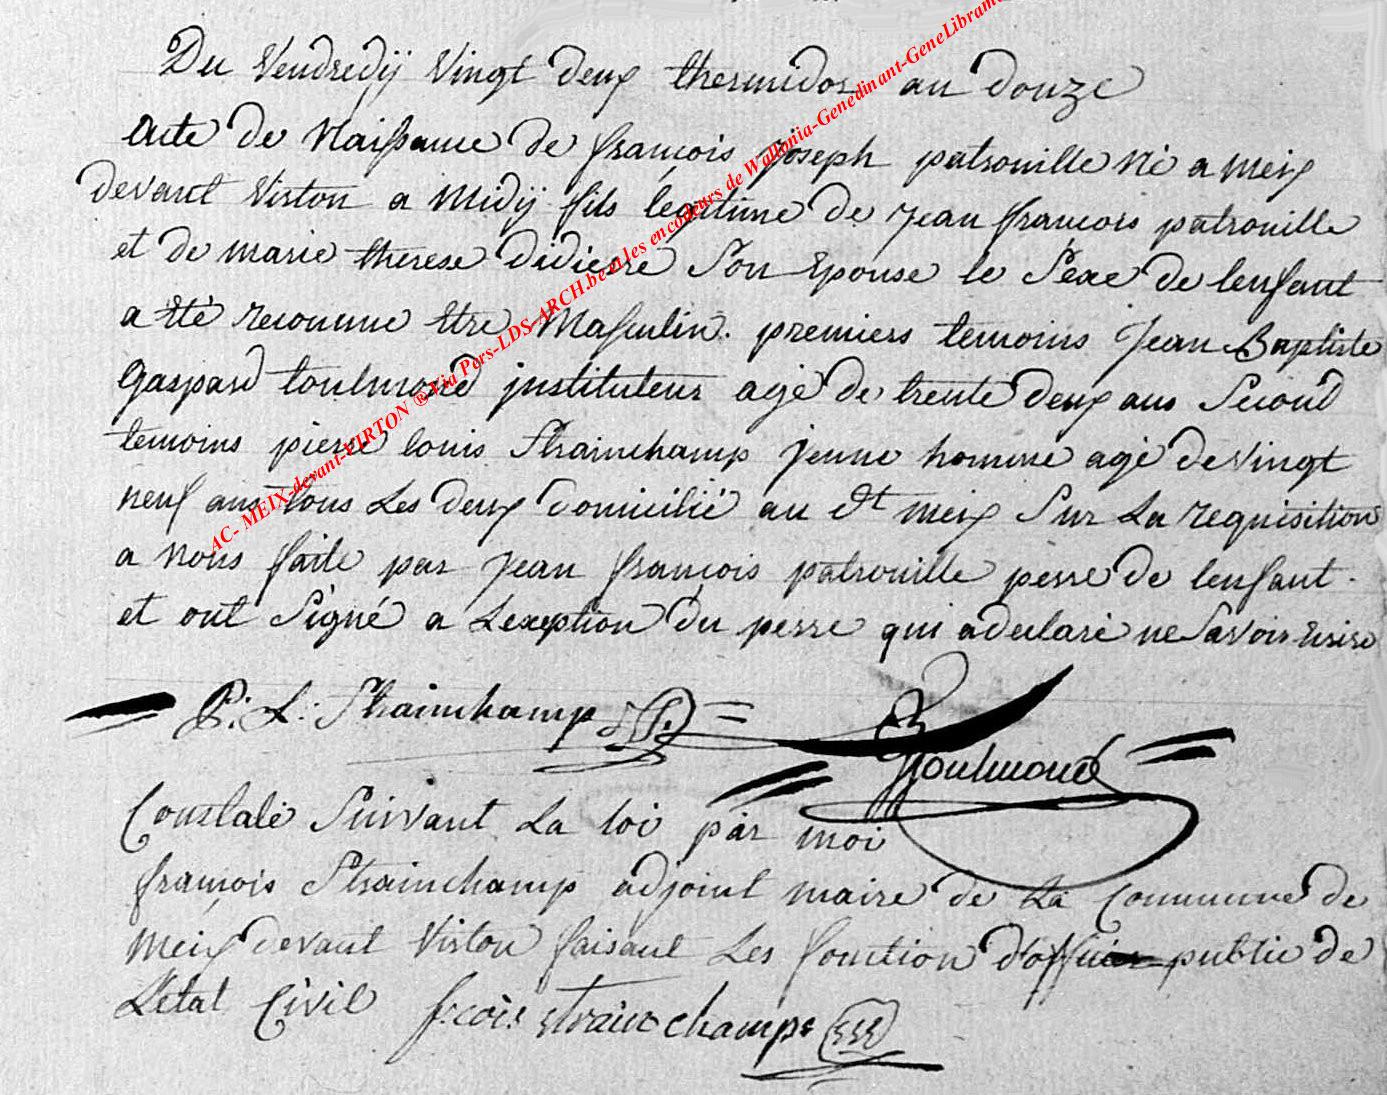 Du Vendredij Vingt deux thermidor an douze
Acte de Naissance de françois joseph patrouille né a meix
devant Virton a Midij fils legitime de jean françois patrouille
et de marie therese didierre Son Epouse le Sexe de lenfant
a été reconnue Etre Masculin. premiers temoins jean Baptiste
Gaspard toulmond jnstituteur agé de trente deux ans Second
temoins pierre louis Strainchamp jeune homme agé de vingt
neuf ans tous Les deux domicilié au dt meix Sur La requisition
a nous faite par jean françois patrouille perre de lenfant.
et ont Signé a Lexeption du perre qui a declaré ne Savoir Ecrire
P: L: Strainchamp
Toulmond
Constaté Suivant La loi par moi
françois Strainchamp adjoint maire de La Commune de
Meix devant Virton faisant Les fonction d'officier public de
L'état Civil f:cois strainchamps
AC- MEIX-devant-VIRTON ® Via Pers-LDS-ARCH.be et les encodeurs de Wallonia-Genedinant-GeneLibrame